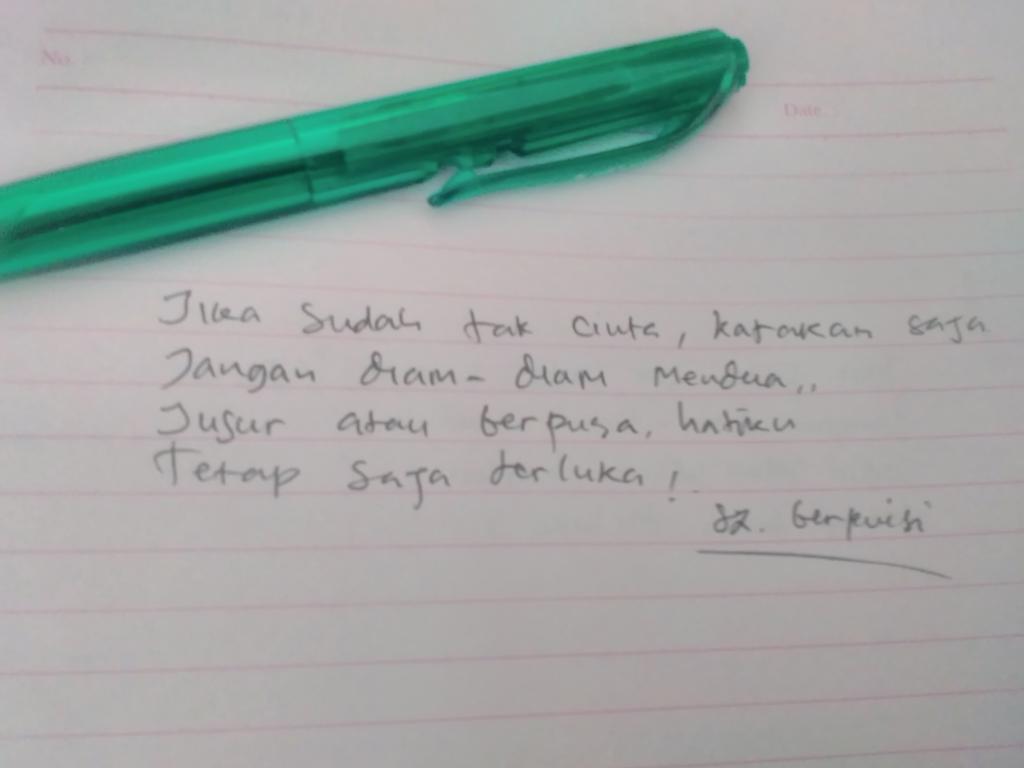 No.
Date.
Jika sudah tak cinta, katakan saja
Jangan diam-diam mendua,,
Jujur atau berpura, hatiku
Tetap saja terluka!
berpuisi